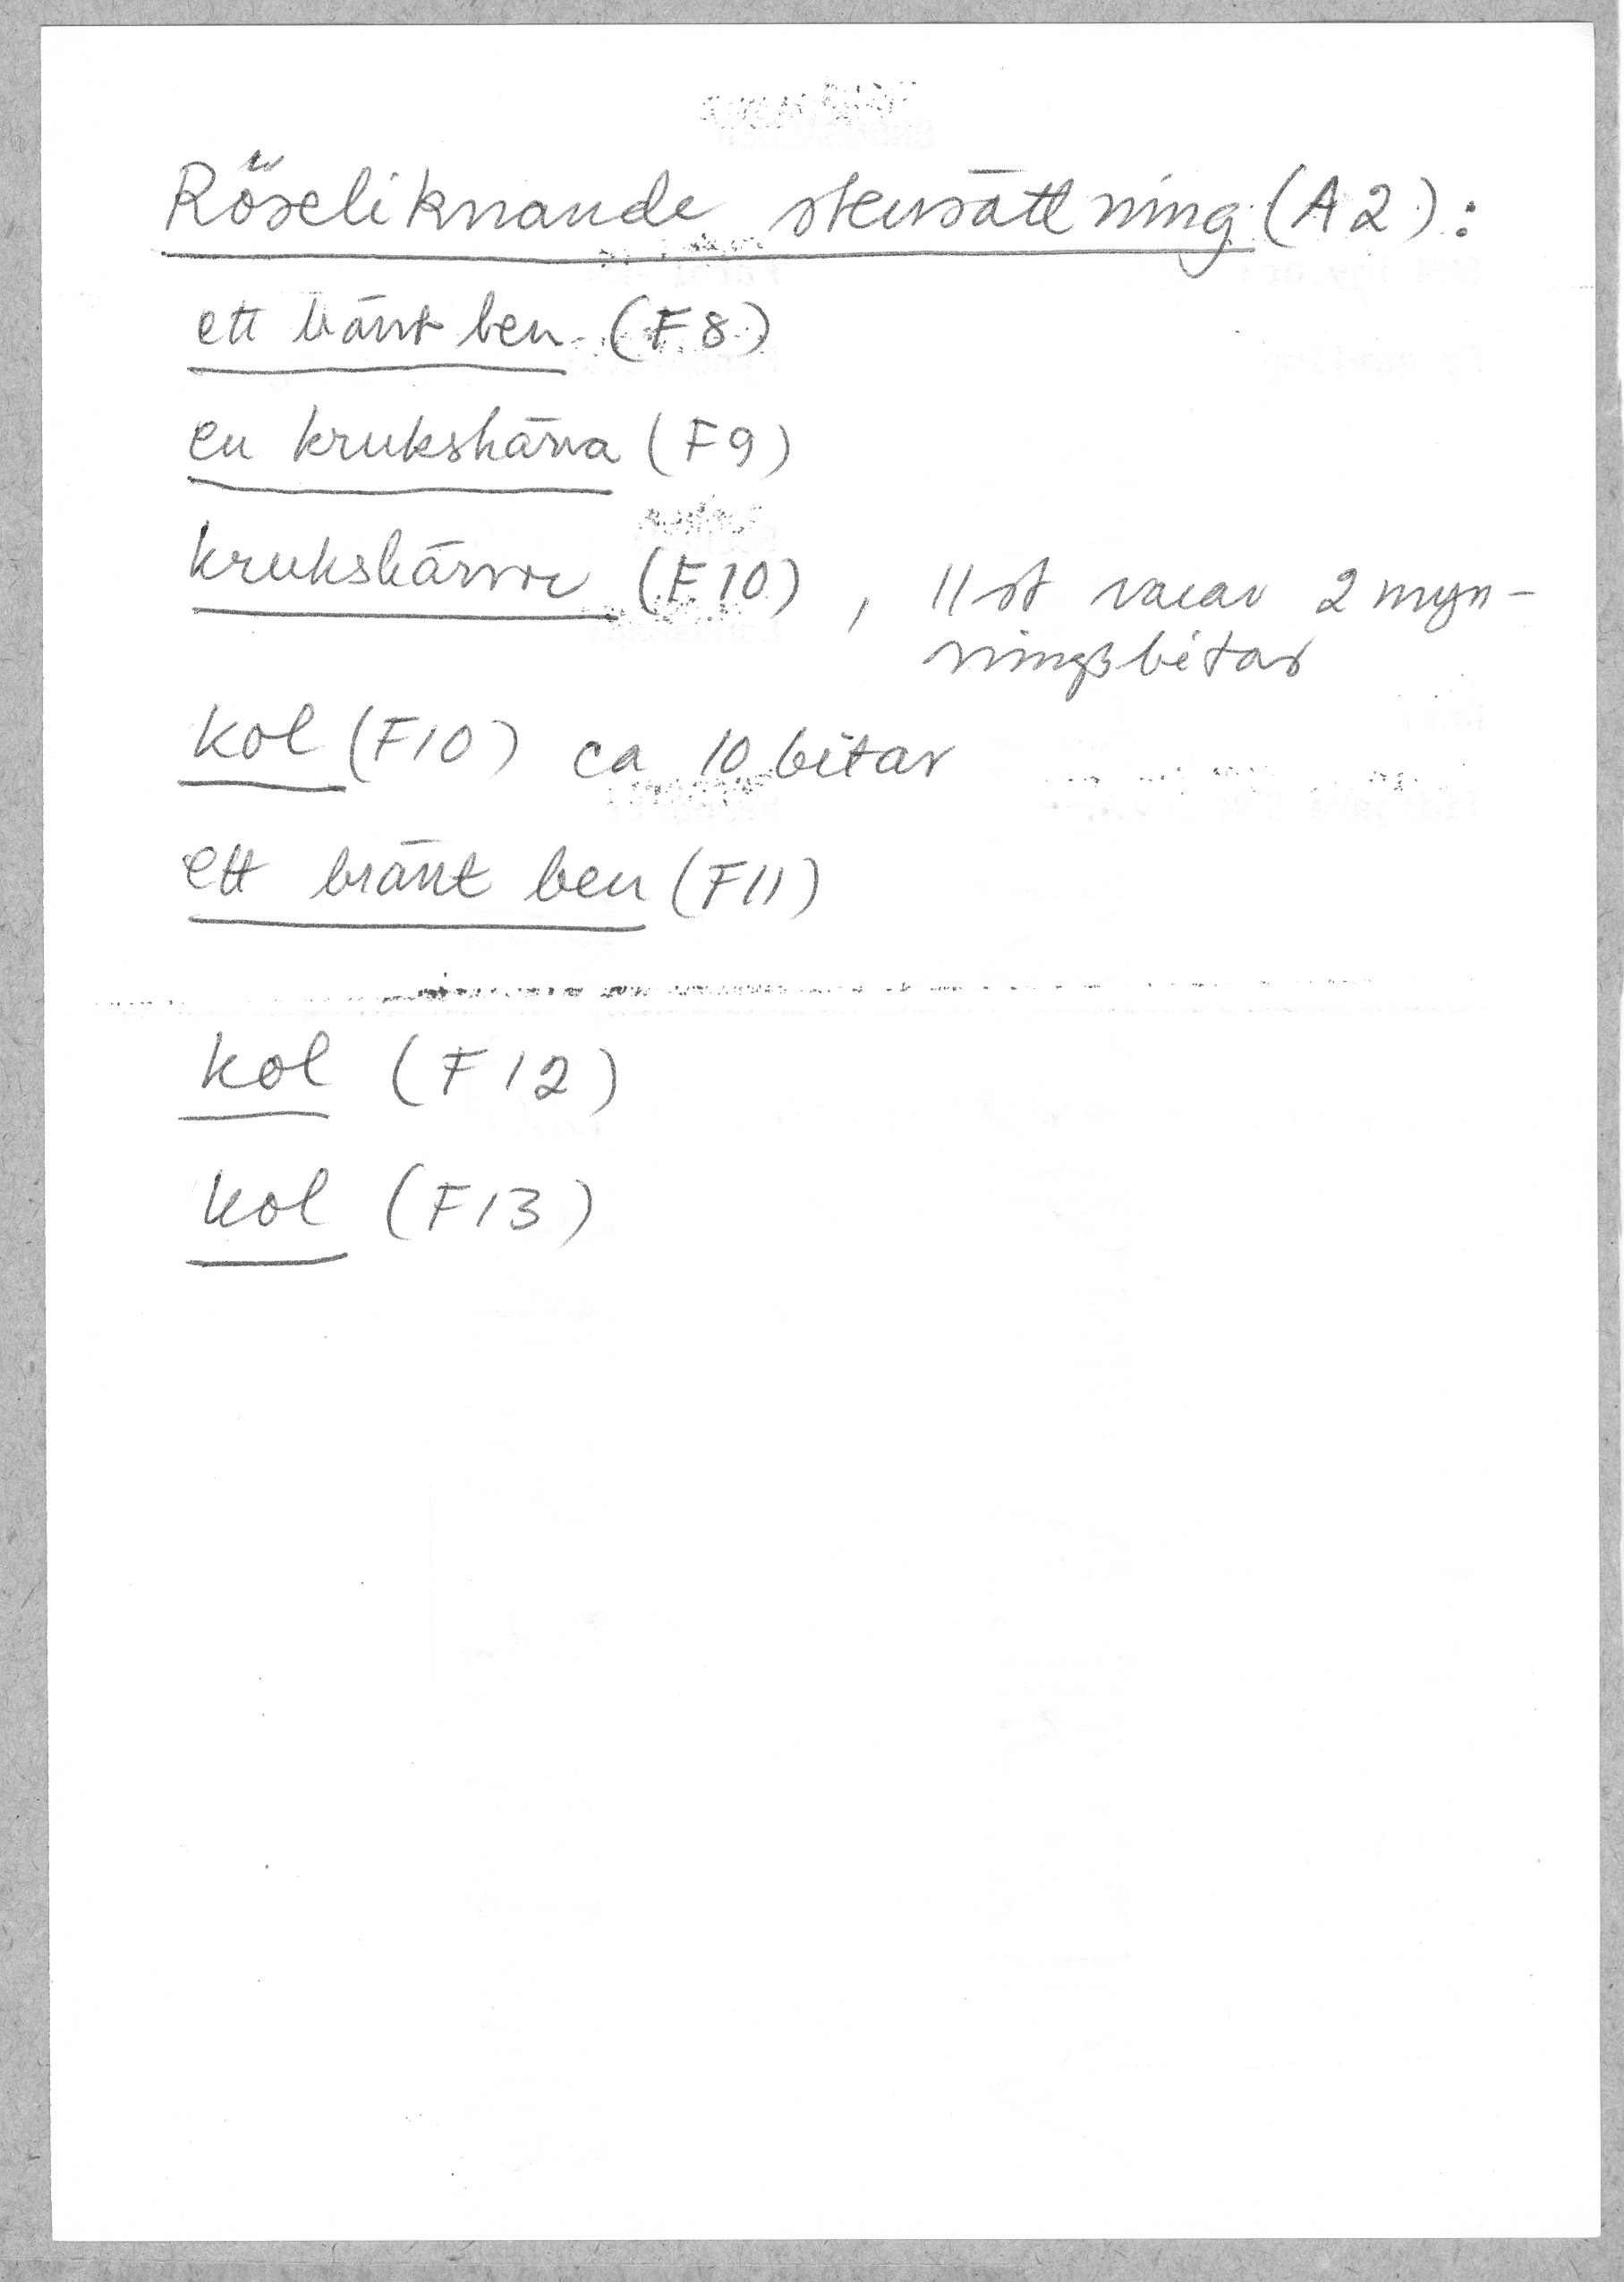 Röseliknande stensättning (A2):
ett bränt ben (F8)
en krukskärva (F9)
krukskärvor (F10), 11 st varav 2 myn-
ningsbitar
kol (F10) ca 10 bitar
ett bränt ben (F11)
kol (F12)
kol (F13)